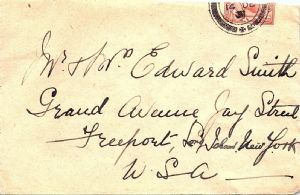 Mr & Mrs Edward Smith
Grand Avenue Jay Street
Freeport, Long Island, New York
U.S.A